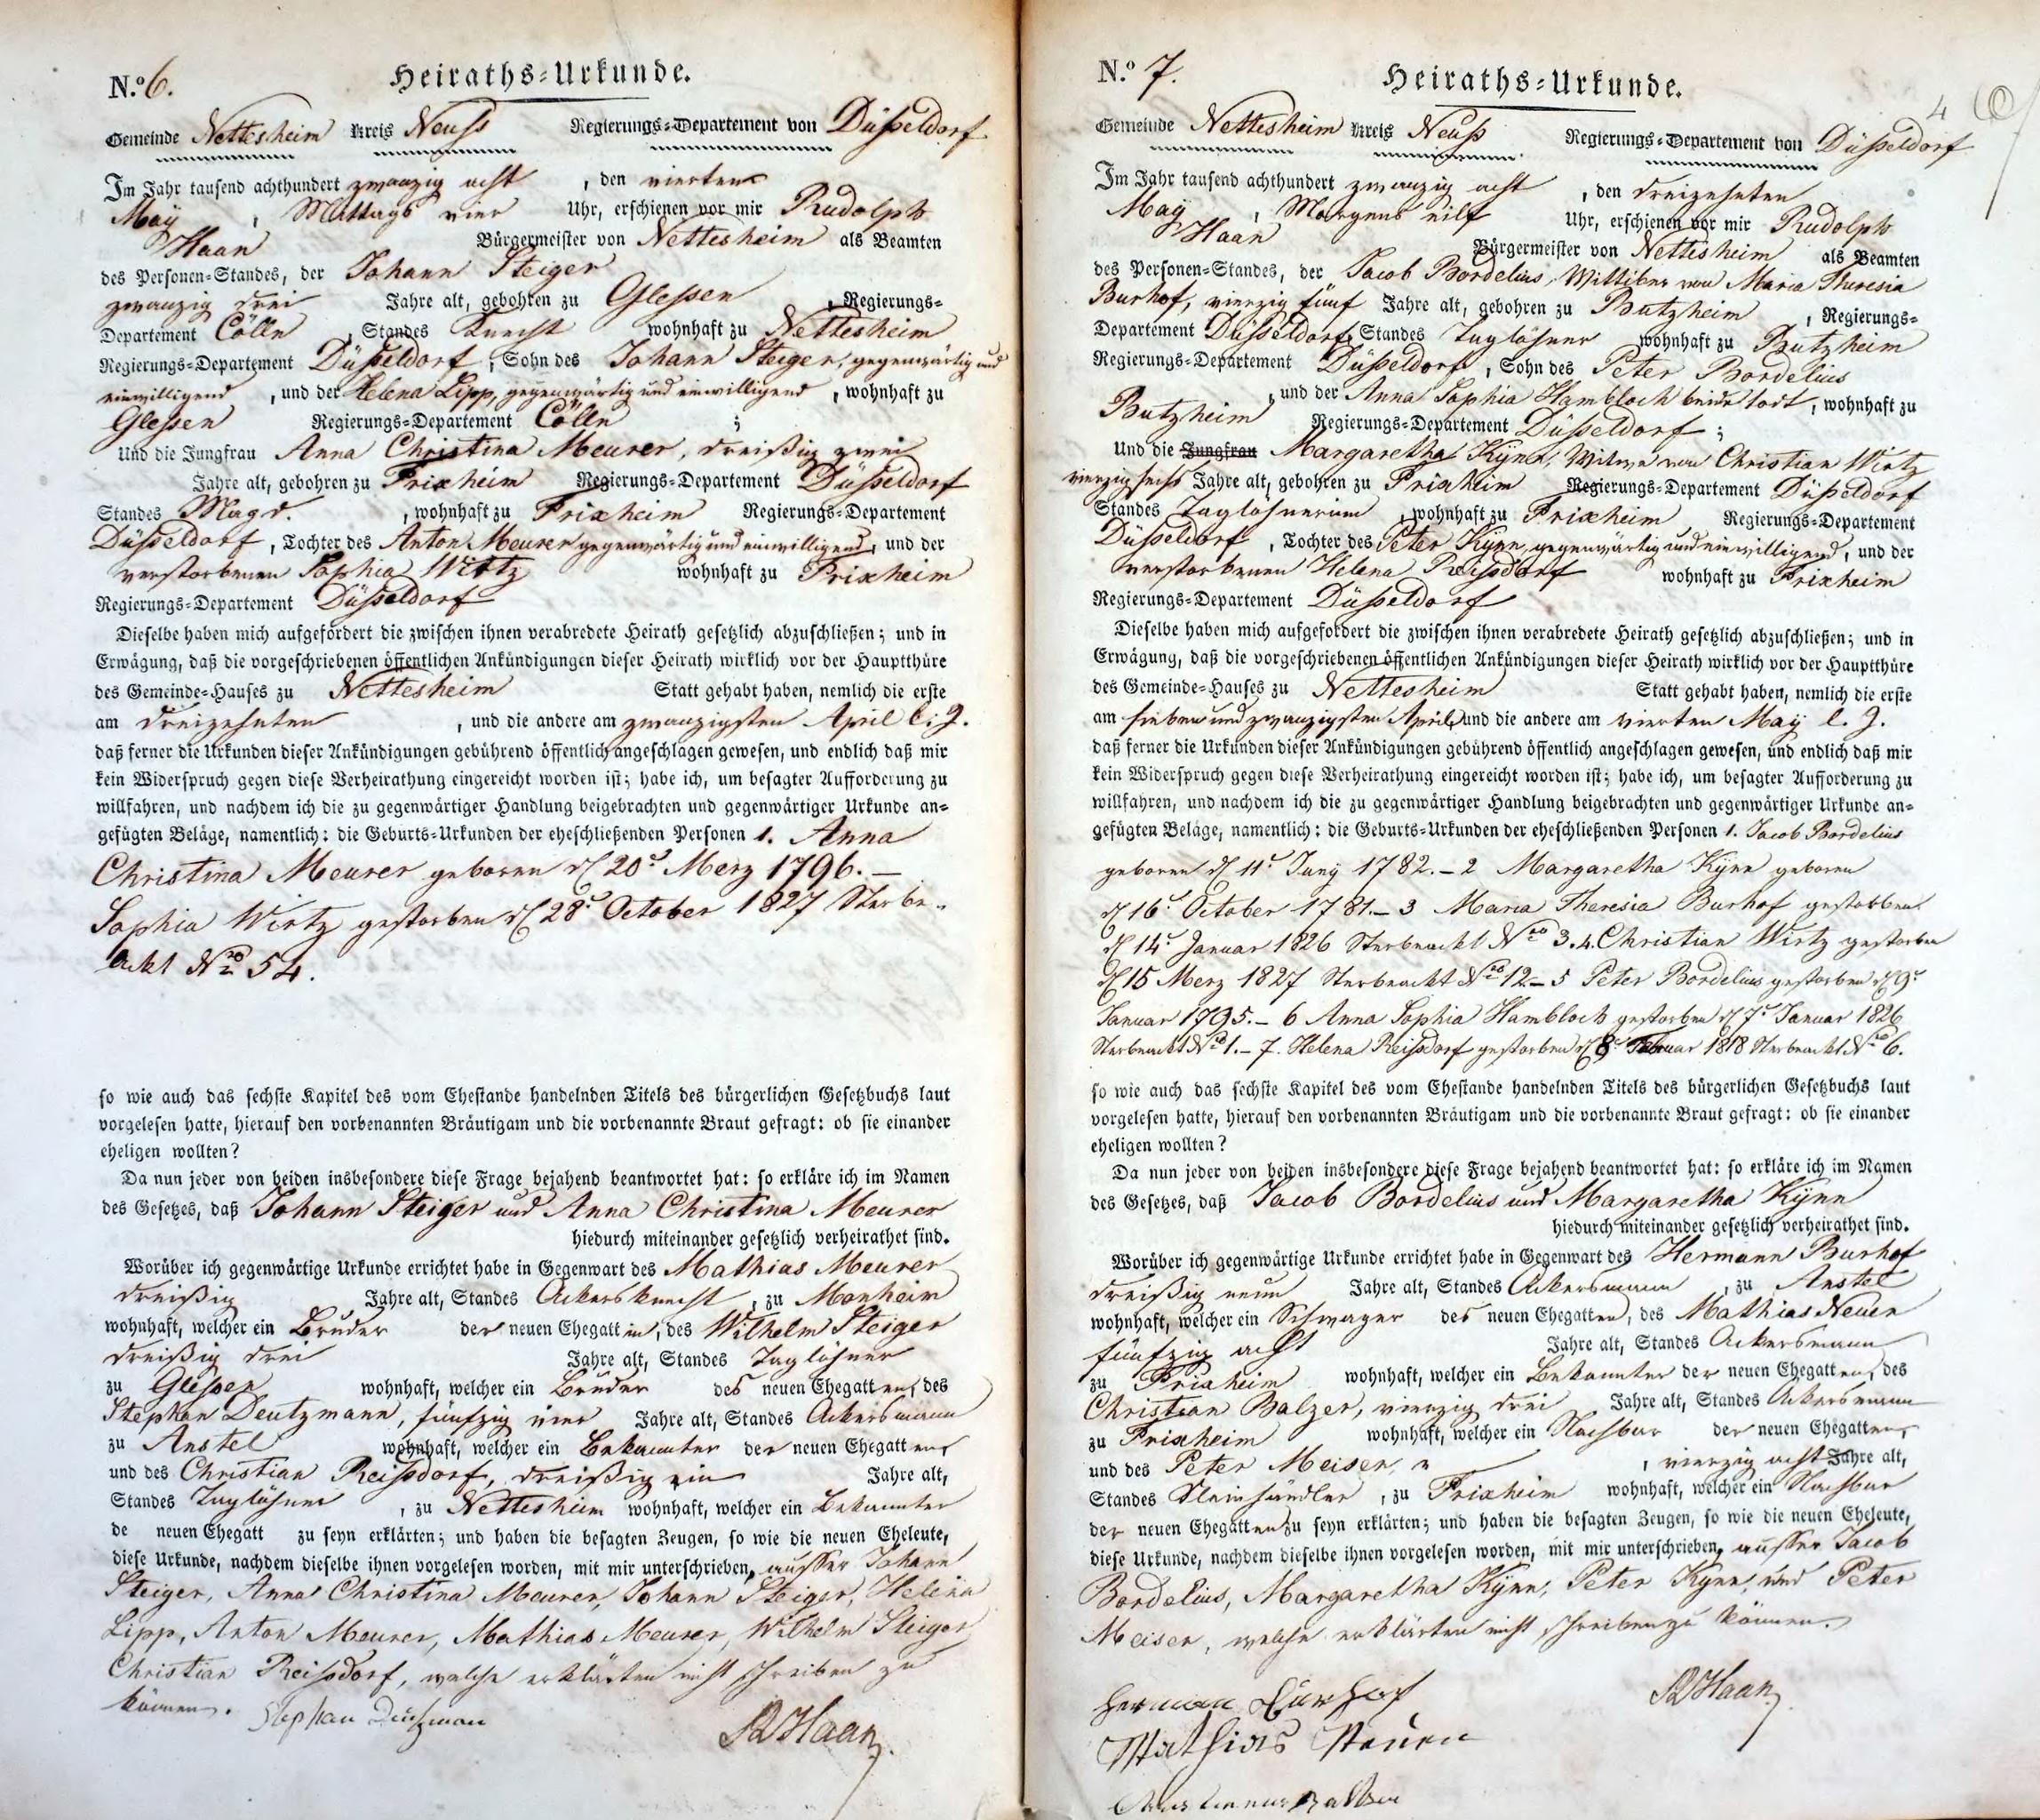 N.º 6. Heiraths-Urkunde.
Gemeinde Nettesheim Kreis Neuß Regierungs-Departement von Düßeldorf
Im Jahr tausend achthundert zwanzig acht , den vierten
Maÿ , Mittags vier Uhr, erschienen vor mir Rudolph
Haan Bürgermeister von Nettesheim als Beamten
des Personen-Standes, der Johann Steiger
zwanzig drei Jahre alt, gebohren zu Gleßen , Regierungs-
Departement Cölln , Standes Knecht wohnhaft zu Nettesheim
Regierungs-Departement Düßeldorf , Sohn des Johann Steiger, gegenwärtig und
einwilligend , und der Helena Lipp, gegenwärtig und einwilligend , wohnhaft zu
Gleßen Regierungs-Departement Cölln ;
Und die Jungfrau Anna Christina Meurer, dreißig zwei
Jahre alt, gebohren zu Frixheim Regierungs-Departement Düßeldorf
Standes Magd. , wohnhaft zu Frixheim Regierungs-Departement
Düßeldorf , Tochter des Anton Meurer gegenwärtig und einwilligend, und der
verstorbenen Sophia Wirtz wohnhaft zu Frixheim
Regierungs-Departement Düßeldorf
Dieselbe haben mich aufgefordert die zwischen ihnen verabredete Heirath gesetzlich abzuschließen; und in
Erwägung, daß die vorgeschriebenen öffentlichen Ankündigungen dieser Heirath wirklich vor der Hauptthüre
des Gemeinde-Hauses zu Nettesheim Statt gehabt haben, nemlich die erste
am dreizehnten , und die andere am zwanzigsten April l. J.
daß ferner die Urkunden dieser Ankündigungen gebührend öffentlich angeschlagen gewesen, und endlich daß mir
kein Widerspruch gegen diese Verheirathung eingereicht worden ist; habe ich, um besagter Aufforderung zu
willfahren, und nachdem ich die zu gegenwärtiger Handlung beigebrachten und gegenwärtiger Urkunde an-
gefügten Beläge, namentlich: die Geburts-Urkunden der eheschließenden Personen 1. Anna
Christina Meurer geboren d 20t Merz 1796. —
Sophia Wirtz gestorben d 28t October 1827 Sterbe-
ackt No 54.
so wie auch das sechste Kapitel des vom Ehestande handelnden Titels des bürgerlichen Gesetzbuchs laut
vorgelesen hatte, hierauf den vorbenannten Bräutigam und die vorbenannte Braut gefragt: ob sie einander
eheligen wollten?
Da nun jeder von beiden insbesondere diese Frage bejahend beantwortet hat: so erkläre ich im Namen
des Gesetzes, daß Johann Steiger und Anna Christina Meurer
hiedurch miteinander gesetzlich verheirathet sind.
Worüber ich gegenwärtige Urkunde errichtet habe in Gegenwart des Mathias Meurer
dreißig Jahre alt, Standes Ackersknecht , zu Monheim
wohnhaft, welcher ein Bruder der neuen Ehegattin, des Wilhelm Steiger
dreißig drei Jahre alt, Standes Taglöhner
zu Gleßen wohnhaft, welcher ein Bruder des neuen Ehegatten, des
Stephan Deutzmann, fünfzig vier Jahre alt, Standes Ackersmann
zu Anstel wohnhaft, welcher ein Bekannter der neuen Ehegatten,
und des Christian Reißdorf, dreißig ein Jahre alt,
Standes Taglöhner , zu Nettesheim wohnhaft, welcher ein Bekannter
de neuen Ehegatt zu seyn erklärten; und haben die besagten Zeugen, so wie die neuen Eheleute,
diese Urkunde, nachdem dieselbe ihnen vorgelesen worden, mit mir unterschrieben, ausser Johann
Steiger, Anna Christina Meurer, Johann Steiger, Helena
Lipp, Anton Meurer, Mathias Meurer, Wilhelm Steiger
Christian Reißdorf, welche erklärten nicht schreiben zu
können. Stephan Deutzman
RHaan
N.º 7. Heiraths-Urkunde.
4
Gemeinde Nettesheim Kreis Neuß Regierungs-Departement von Düßeldorf
Im Jahr tausend achthundert zwanzig acht , den dreizehnten
Maÿ , Morgens eilf Uhr, erschienen vor mir Rudolph
Haan Bürgermeister von Nettesheim als Beamten
des Personen-Standes, der Jacob Bordelius, Wittiber von Maria Theresia
Burhof, vierzig fünf Jahre alt, gebohren zu Butzheim , Regierungs-
Departement Düßeldorf, Standes Taglöhner wohnhaft zu Butzheim
Regierungs-Departement Düßeldorf , Sohn des Peter Bordelius
, und der Anna Sophia Hambloch beide todt , wohnhaft zu
Butzheim Regierungs-Departement Düßeldorf ;
Und die Jungfrau Margaretha Kÿnn, Witwe von Christian Wirtz
vierzig sechs Jahre alt, gebohren zu Frixheim Regierungs-Departement Düßeldorf
Standes Taglöhnerinn , wohnhaft zu Frixheim Regierungs-Departement
Düßeldorf , Tochter des Peter Kÿnn, gegenwärtig und einwilligend, und der
verstorbenen Helena Reißdorf wohnhaft zu Frixheim
Regierungs-Departement Düßeldorf
Dieselbe haben mich aufgefordert die zwischen ihnen verabredete Heirath gesetzlich abzuschließen; und in
Erwägung, daß die vorgeschriebenen öffentlichen Ankündigungen dieser Heirath wirklich vor der Hauptthüre
des Gemeinde-Hauses zu Nettesheim Statt gehabt haben, nemlich die erste
am sieben und zwanzigsten April, und die andere am vierten Maÿ l. J.
daß ferner die Urkunden dieser Ankündigungen gebührend öffentlich angeschlagen gewesen, und endlich daß mir
kein Widerspruch gegen diese Verheirathung eingereicht worden ist; habe ich, um besagter Aufforderung zu
willfahren, und nachdem ich die zu gegenwärtiger Handlung beigebrachten und gegenwärtiger Urkunde an-
gefügten Beläge, namentlich: die Geburts-Urkunden der eheschließenden Personen 1. Jacob Bordelius
geboren d 11t Junÿ 1782. – 2 Margaretha Kÿnn geboren
d 16t October 1781. – 3 Maria Theresia Burhof gestorben
d 14t Januar 1826 Sterbeackt No 3. 4. Christian Wirtz gestorben
d 15 Merz 1827 Sterbeackt No 12 – 5 Peter Bordelius gestorben d 9t
Januar 1795. – 6 Anna Sophia Hambloch gestorben d 7t Januar 1826
Sterbeackt No 1. – 7. Helena Reißdorf gestorben d 8t Februar 1818 Sterbeackt No 6.
so wie auch das sechste Kapitel des vom Ehestande handelnden Titels des bürgerlichen Gesetzbuchs laut
vorgelesen hatte, hierauf den vorbenannten Bräutigam und die vorbenannte Braut gefragt: ob sie einander
eheligen wollten?
Da nun jeder von beiden insbesondere diese Frage bejahend beantwortet hat: so erkläre ich im Namen
des Gesetzes, daß Jacob Bordelius und Margaretha Kÿnn
hiedurch miteinander gesetzlich verheirathet sind.
Worüber ich gegenwärtige Urkunde errichtet habe in Gegenwart des Hermann Burhof
dreißig neun Jahre alt, Standes Ackersmann , zu Anstel
wohnhaft, welcher ein Schwager des neuen Ehegatten, des Mathias Neuen
fünfzig acht Jahre alt, Standes Ackersmann
zu Frixheim wohnhaft, welcher ein Bekannter der neuen Ehegatten, des
Christian Balzer, vierzig drei Jahre alt, Standes Ackersmann
zu Frixheim wohnhaft, welcher ein Nachbar der neuen Ehegatten,
und des Peter Meisen, , vierzig acht Jahre alt,
Standes Kleinhändler , zu Frixheim wohnhaft, welcher ein Nachbar
der neuen Ehegatten zu seyn erklärten; und haben die besagten Zeugen, so wie die neuen Eheleute,
diese Urkunde, nachdem dieselbe ihnen vorgelesen worden, mit mir unterschrieben, ausser Jacob
Bordelius, Margaretha Kÿnn, Peter Kynn, und Peter
Meisen, welche erklärten nicht schreiben zu können.
Herman Burhof RHaan
Mathias Neuen